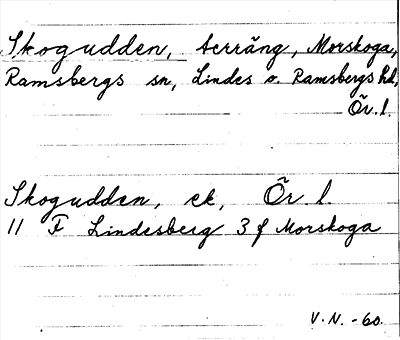 Skogudden, terräng, Morskoga,
Ramsbergs sn, Lindes o. Ramsbergs hd,
Ör. l.
Skogudden, ek, Ör l.
11 F Lindesberg 3 f Morskoga
V.N. -60.